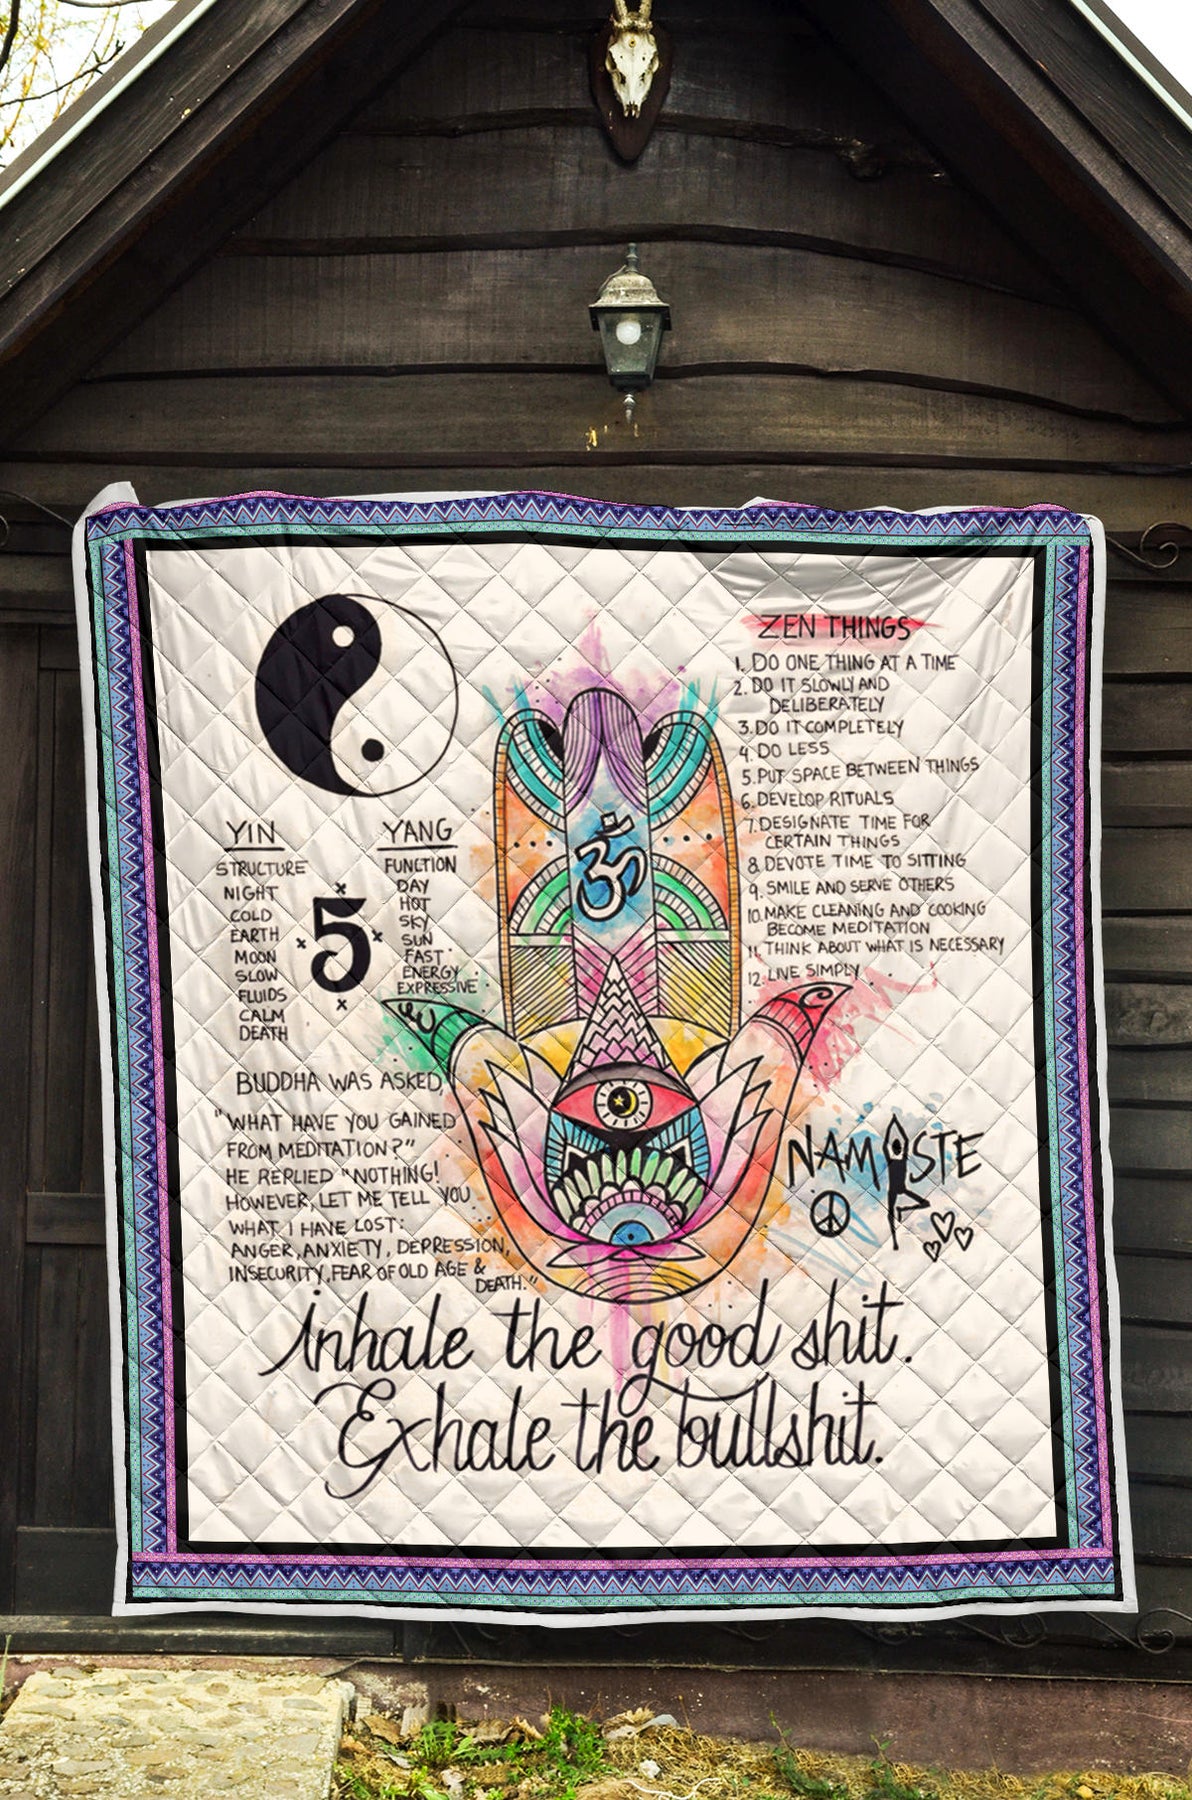 ZEN THINGS
1. DO ONE THING AT A TIME
2. DO IT SLOWLY AND
DELIBERATELY
3. DO IT COMPLETELY
4. DO LESS
5. PUT SPACE BETWEEN THINGS
6. DEVELOP RITUALS
7. DESIGNATE TIME FOR
CERTAIN THINGS
8. DEVOTE TIME TO SITTING
9. SMILE AND SERVE OTHERS
10. MAKE CLEANING AND COOKING
BECOME MEDITATION
11. THINK ABOUT WHAT IS NECESSARY
12. LIVE SIMPLY
YIN
STRUCTURE
NIGHT
COLD
EARTH
MOON
SLOW
FLUIDS
CALM
DEATH
YANG
FUNCTION
DAY
HOT
SKY
SUN
FAST
ENERGY
EXPRESSIVE
ॐ
BUDDHA WAS ASKED,
"WHAT HAVE YOU GAINED
FROM MEDITATION?"
HE REPLIED "NOTHING!
HOWEVER, LET ME TELL YOU
WHAT I HAVE LOST:
ANGER, ANXIETY, DEPRESSION,
INSECURITY, FEAR OF OLD AGE &
DEATH."
NAMASTE
inhale the good shit.
Exhale the bullshit.